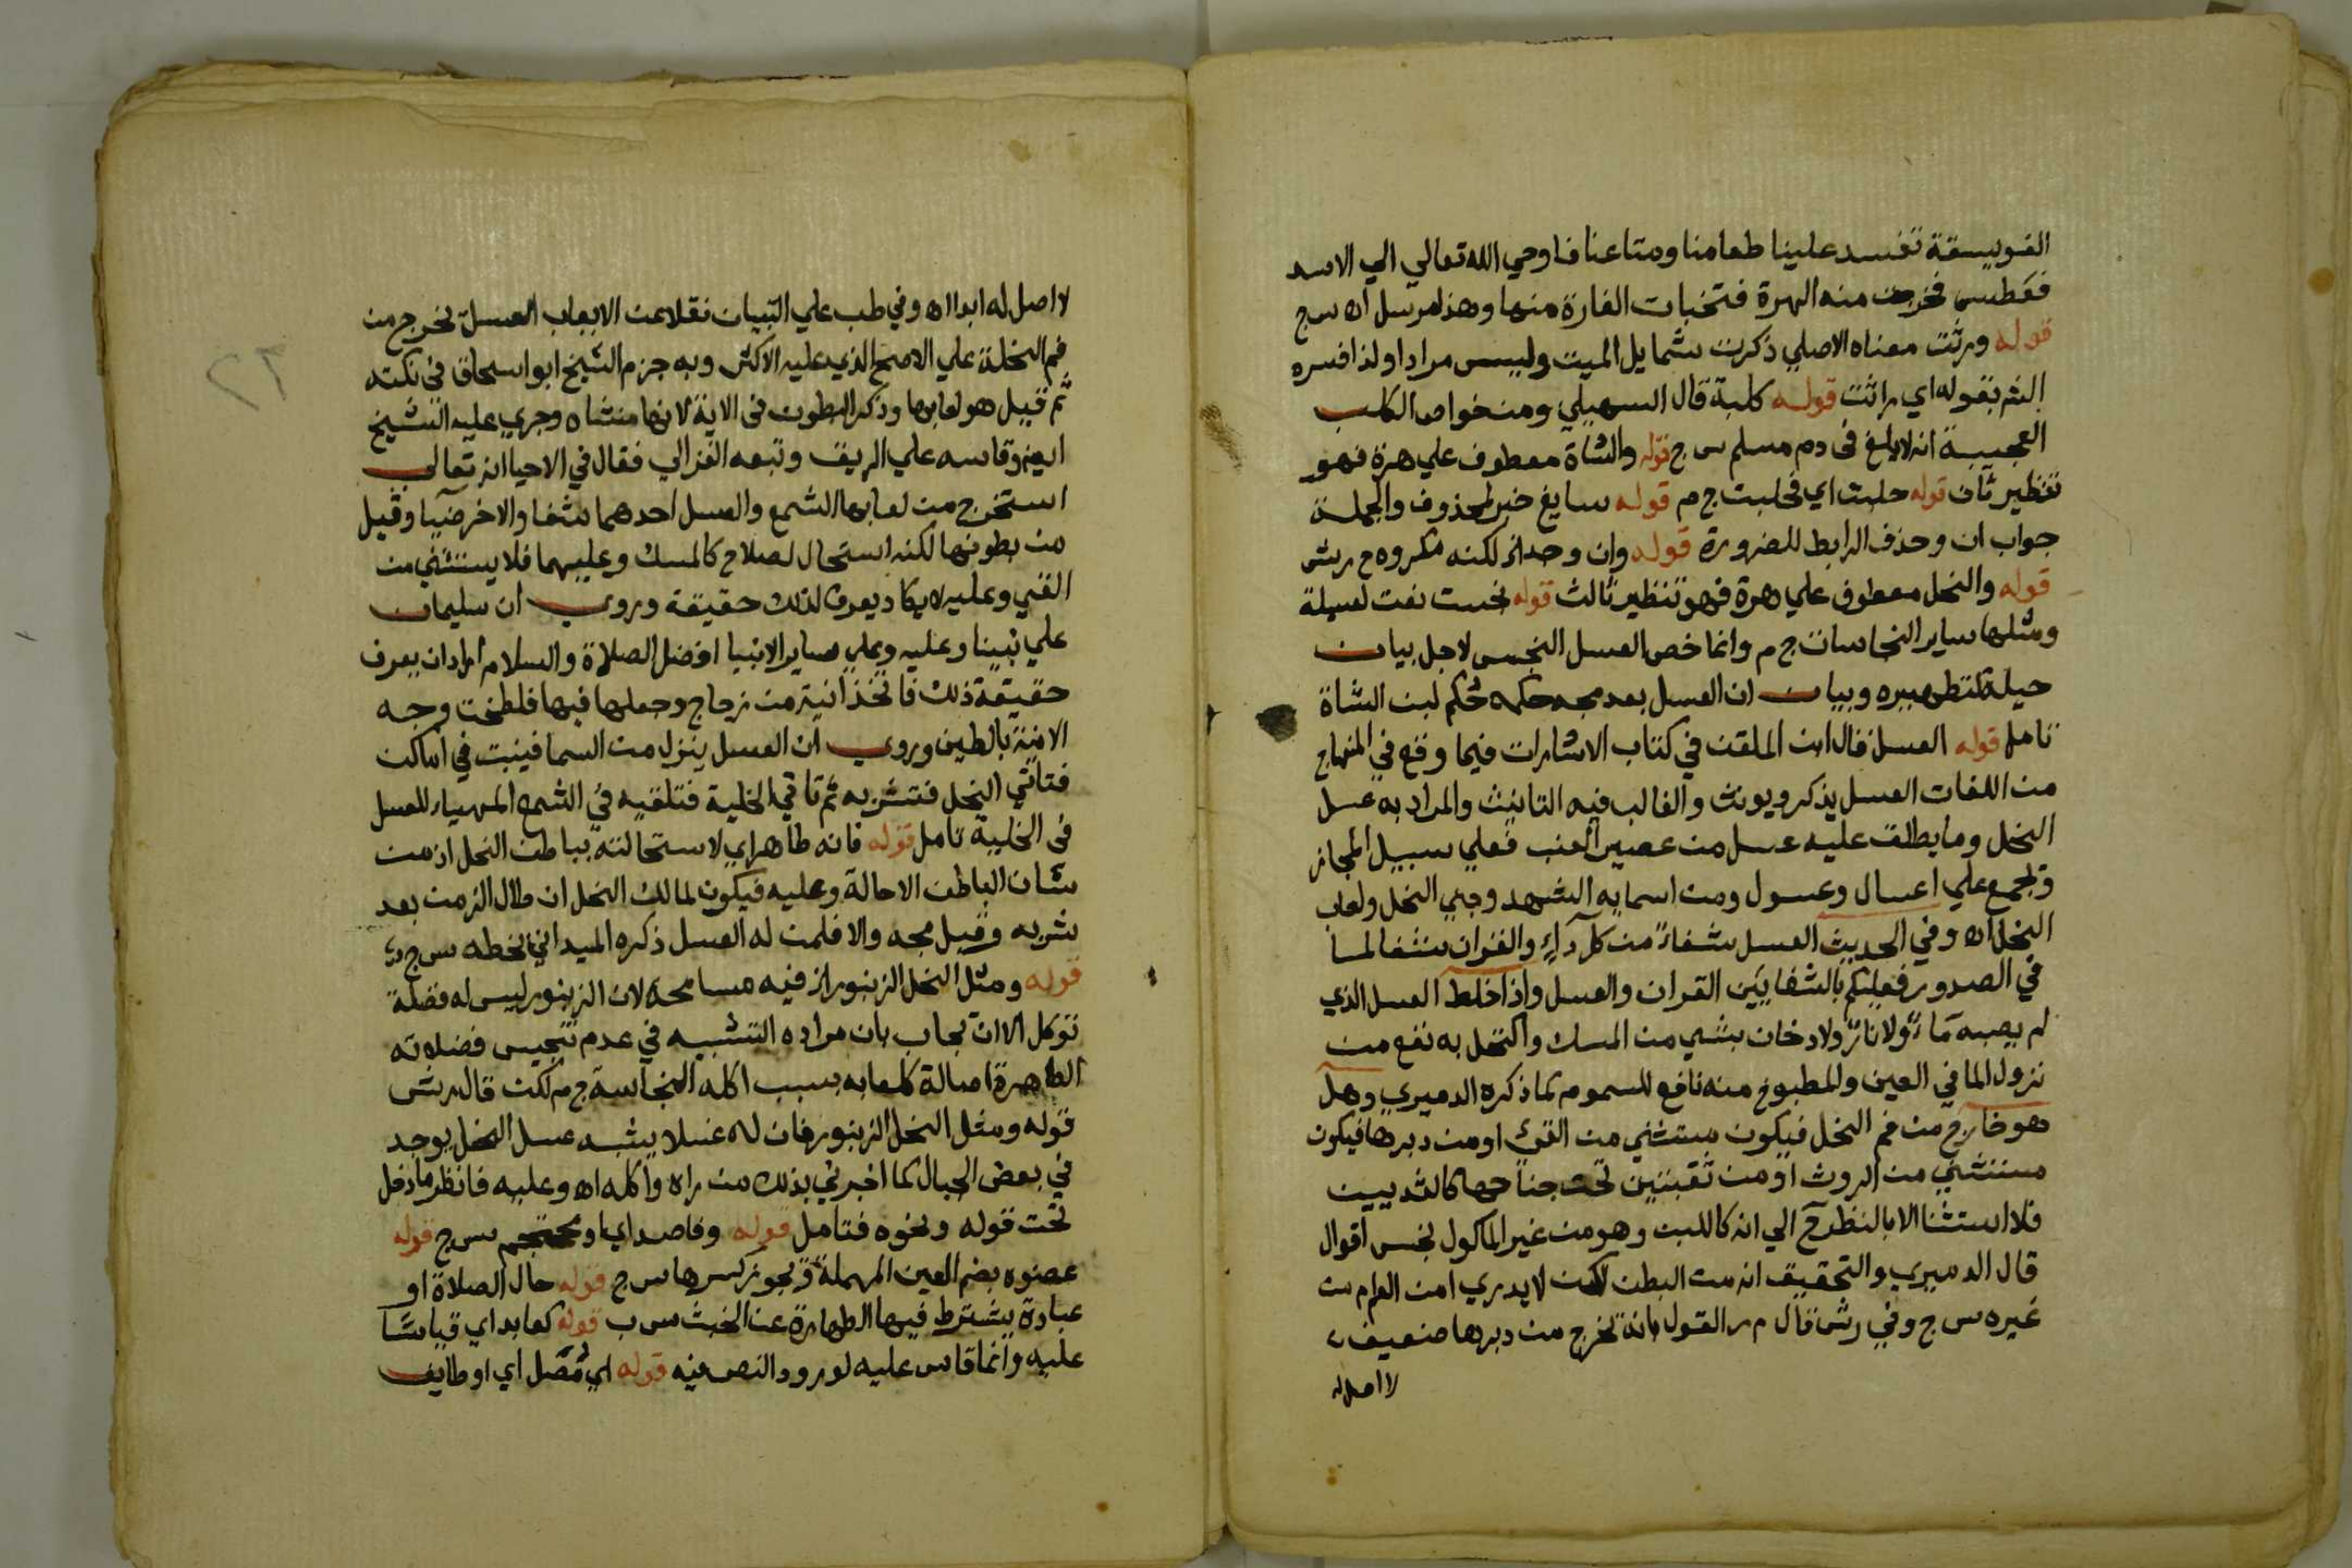 الفويسقة تفسد علينا طعامنا ومتاعنا فاوحي الله تعالي الي الاسد
فعطس فخرجت منه الهرة فتخبات الفارة منها وهذا مرسل اه س ج
قوله ورثت معناه الاصلي ذكرت شمايل الميت وليس مرادا ولذا فسره
الش بقوله اي راثت قوله كلبة قال السهيلي ومن خواص الكلب
العجيبة انه لا يلغ في دم مسلم س ج قوله والشاة معطوف علي هرة فهو
تنظير ثان قوله حلبت اي فحلبت ج م قوله سايغ خبر لمحذوف والجملة
جواب ان وحذف الرابط للضرورة قوله وان وحدانز لكنه مكروه ح ر ش
قوله والنحل معطوف علي هرة فهو تنظير ثالث قوله نجست نعت لعسيلة
ومثلها ساير النجاسات ج م وانما خص العسل النجس لاجل بيان
حيلة لتطهيره وبيان ان العسل بعد مجه حكمه حكم لبن الشاة
تامل قوله العسل قال ابن الملقن في كتاب الاشارات فيما وقع في المنهاج
من اللغات العسل يذكر ويونث والغالب فيه التانيث والمراد به عسل
النحل وما يطلق عليه عسل من عصير العنب فعلي سبيل المجاز
وتجمع علي اعسال وعسول ومن اسمايه الشهد وجني النحل ولعاب
النحل اه وفي الحديث العسل شفاء من كل دآء والقران شفا لما
في الصدور فعليكم بالشفايين القران والعسل واذا خلط العسل الذي
لم يصبه ماء ولا نار ولا دخان بشي من المسك واكتحل به نفع من
نزول الما في العين والمطبوخ منه نافع للسموم كما ذكره الدميري وهل
هو خارج من فم النحل فيكون مستثني من القئ او من دبرها فيكون
مستثني من الروث او من ثقبتين تحت جناحها كالثديين
فلا استثنا الا بالنظر ح الي انه كاللبن وهو من غير الماكول نجس اقوال
قال الدميري والتحقيق انه من البطن لكن لا يدري امن الفم ام من
غيره س ج وفي ر ش قال م ر القول بانه تخرج من دبرها ضعيف
لا اصل له
لا اصل له ابدا اه وفي طب علي التبيان نقلا عن الابعاب العسل تخرج من
فم النحلة علي الاصح الذي عليه الاكثر وبه جزم الشيخ ابو اسحاق في نكته
ثم قيل هو لعابها وذكر البطون في الاية لانها منشاه وجري عليه الشيخ
ايض وقاسه علي الريق وتبعه الغزالي فقال في الاحيا انه تعالي
استخرج من لعابها الشمع والعسل احدهما شفا والاخر ضيا وقيل
من بطونها لكنه استحال لصلاح كالمسك وعليهما فلا يستثني من
القي وعليه لا يكاد يعرف لذلك حقيقة وروي ان سليمان
علي نبينا وعليه وعلي ساير الانبيا افضل الصلاة والسلام اراد ان يعرف
حقيقة ذلك فاتخذ انية من زجاج وجعلها فيها فلطخت وجه
الانية بالطين وروي ان العسل ينزل من السما فينبت في اماكن
فتاتي النحل فتشربه ثم تاتي الخلية فتلقيه في الشمع المهيا للعسل
في الخلية تامل قوله فانه طاهر اي لاستحالته بباطن النحل اذ من
شان الباطن الاحالة وعليه فيكون لمالك النحل ان طال الزمن بعد
شربه وقبل مجه والا فلمن له العسل ذكره الميداني بخطه س ج
قوله ومثل النحل الزنبور از فيه مسامحة لان الزنبور ليس له فضلة
توكل الا ان يجاب بان مراده التشبيه في عدم تنجيس فضلاته
الطاهرة اصالة كلعابه بسبب اكله النجاسة ج م لكن قال ر ش
قوله ومثل النحل الزنبور فان له عسلا يشبه عسل النحل يوجد
في بعض الجبال كما اخبرني بذلك من راه واكله اه وعليه فانظر ما دخل
تحت قوله ونحوه فتامل قوله وفاصد اي او محتجم س ج قوله
عضوه بضم العين المهملة وتجوز كسرها س ج قوله حال الصلاة او
عبادة يشترط فيها الطهارة عن الخبث س ب قوله كعابد اي قياسا
عليه وانما قاس عليه لورود النص فيه قوله اي مصل اي او طايف